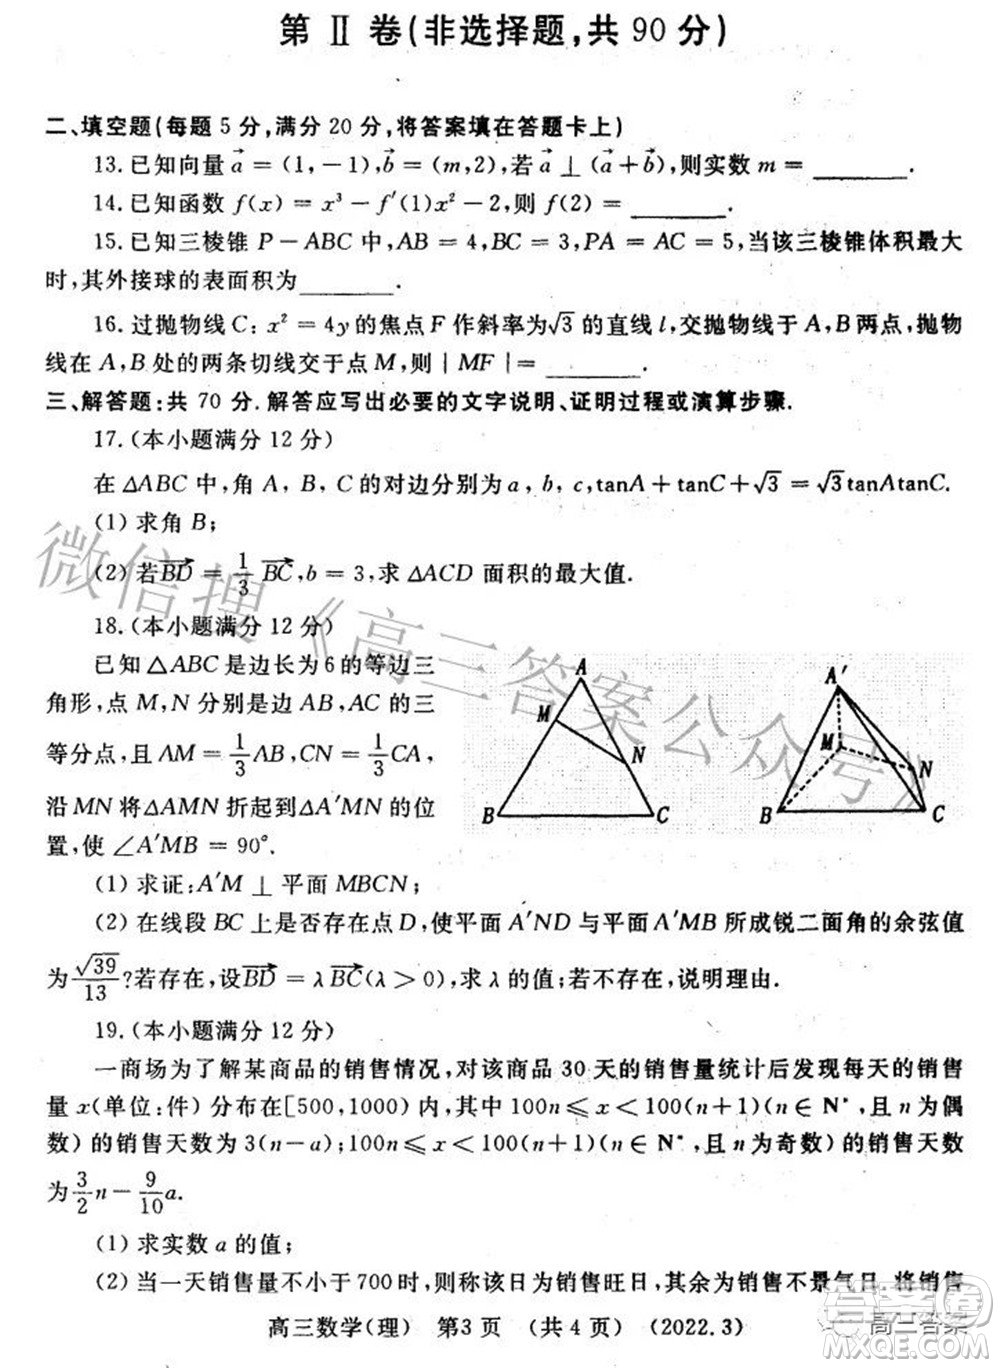 第 Ⅱ 卷(非选择题,共 90 分)
二、填空题(每题 5 分,满分 20 分,将答案填在答题卡上)
13.已知向量 $\vec{a}$ = (1,−1),$\vec{b}$ = (m,2),若 $\vec{a}$ ⊥ ($\vec{a}$ + $\vec{b}$),则实数 m = ______.
14.已知函数 f(x) = x³ − f′(1)x² − 2,则 f(2) = ______.
15.已知三棱锥 P − ABC 中,AB = 4,BC = 3,PA = AC = 5,当该三棱锥体积最大
时,其外接球的表面积为______.
16.过抛物线 C: x² = 4y 的焦点 F 作斜率为√3 的直线 l,交抛物线于 A,B 两点,抛物
线在 A,B 处的两条切线交于点 M,则 | MF | = ______.
三、解答题:共 70 分.解答应写出必要的文字说明、证明过程或演算步骤.
17.(本小题满分 12 分)
在 △ABC 中,角 A, B, C 的对边分别为 a, b, c,tanA + tanC + √3 = √3 tanAtanC.
(1) 求角 B;
(2) 若 $\overrightarrow{BD}$ = $\frac{1}{3}$ $\overrightarrow{BC}$,b = 3,求 △ACD 面积的最大值.
18.(本小题满分 12 分)
已知 △ABC 是边长为 6 的等边三
角形,点 M,N 分别是边 AB,AC 的三
等分点,且 AM = $\frac{1}{3}$AB,CN = $\frac{1}{3}$CA,
沿 MN 将 △AMN 折起到 △A′MN 的位
置,使 ∠A′MB = 90°.
A
M
N
B
C
A′
M
N
B
C
(1) 求证:A′M ⊥ 平面 MBCN;
(2) 在线段 BC 上是否存在点 D,使平面 A′ND 与平面 A′MB 所成锐二面角的余弦值
为 $\frac{\sqrt{39}}{13}$?若存在,设 $\overrightarrow{BD}$ = λ $\overrightarrow{BC}$(λ > 0),求 λ 的值;若不存在,说明理由.
19.(本小题满分 12 分)
一商场为了解某商品的销售情况,对该商品 30 天的销售量统计后发现每天的销售
量 x(单位:件) 分布在[500,1000) 内,其中 100n ⩽ x < 100(n + 1)(n ∈ N*,且 n 为偶
数) 的销售天数为 3(n − a);100n ⩽ x < 100(n + 1)(n ∈ N*,且 n 为奇数) 的销售天数
为 $\frac{3}{2}$n − $\frac{9}{10}$a.
(1) 求实数 a 的值;
(2) 当一天销售量不小于 700 时,则称该日为销售旺日,其余为销售不景气日 将销售
高三数学(理) 第3页 (共 4 页) (2022.3)
微信搜《高三答案公众号》
高三答案
答案圈
MXQE.COM